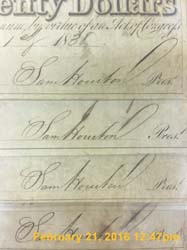 enty Dollars
by virtue of an Act of Congress
183
Sam Houston Pres.
Sam Houston Pres.
Sam Houston Pres.
Sam Houston Pres.
February 21, 2016 12:47pm